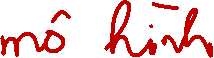 mô hình